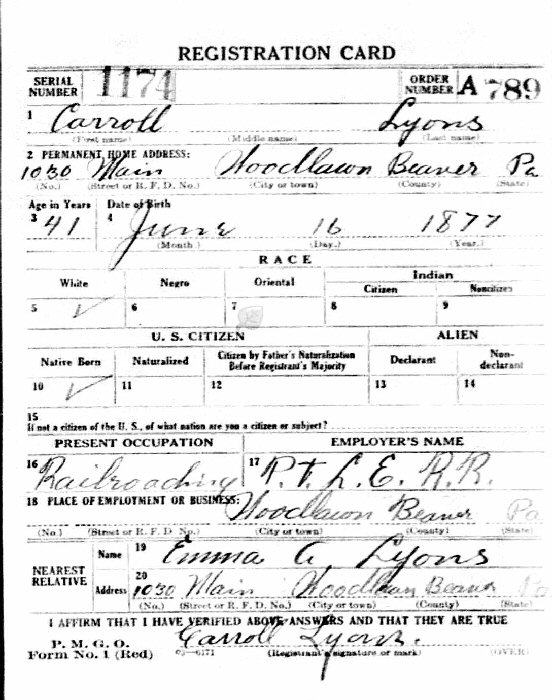 REGISTRATION CARD
SERIAL NUMBER 1174 ORDER NUMBER A 789
1 Carroll Lyons
(First name) (Middle name) (Last name)
2 PERMANENT HOME ADDRESS:
1030 Main Woodlawn Beaver Pa
(No.) (Street or R. F. D. No.) (City or town) (County) (State)
Age in Years Date of Birth
3 41 4 June 16 1877
(Month.) (Day.) (Year.)
RACE
White Negro Oriental Indian
Citizen Noncitizen
5 ✓ 6 7 8 9
U. S. CITIZEN ALIEN
Native Born Naturalized Citizen by Father's Naturalization Before Registrant's Majority Declarant Non-declarant
10 ✓ 11 12 13 14
15
If not a citizen of the U. S., of what nation are you a citizen or subject?
PRESENT OCCUPATION EMPLOYER'S NAME
16 Railroading 17 P. & L. E. R.R.
18 PLACE OF EMPLOYMENT OR BUSINESS:
Woodlawn Beaver Pa
(No.) (Street or R. F. D. No.) (City or town) (County) (State)
NEAREST RELATIVE
Name 19 Emma A. Lyons
Address 20 1030 Main Woodlawn Beaver Pa
(No.) (Street or R. F. D. No.) (City or town) (County) (State)
I AFFIRM THAT I HAVE VERIFIED ABOVE ANSWERS AND THAT THEY ARE TRUE
P. M. G. O.
Form No. 1 (Red) 03—6171 Carroll Lyons.
(Registrant's signature or mark) (OVER)